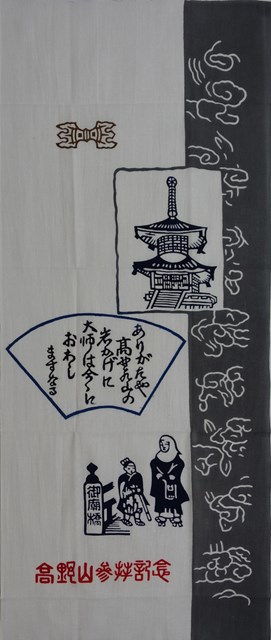 ありがたや
高せ乃山の
岩かげに
大師は今に
おわし
ますなる
御廟橋
高野山參拜記念